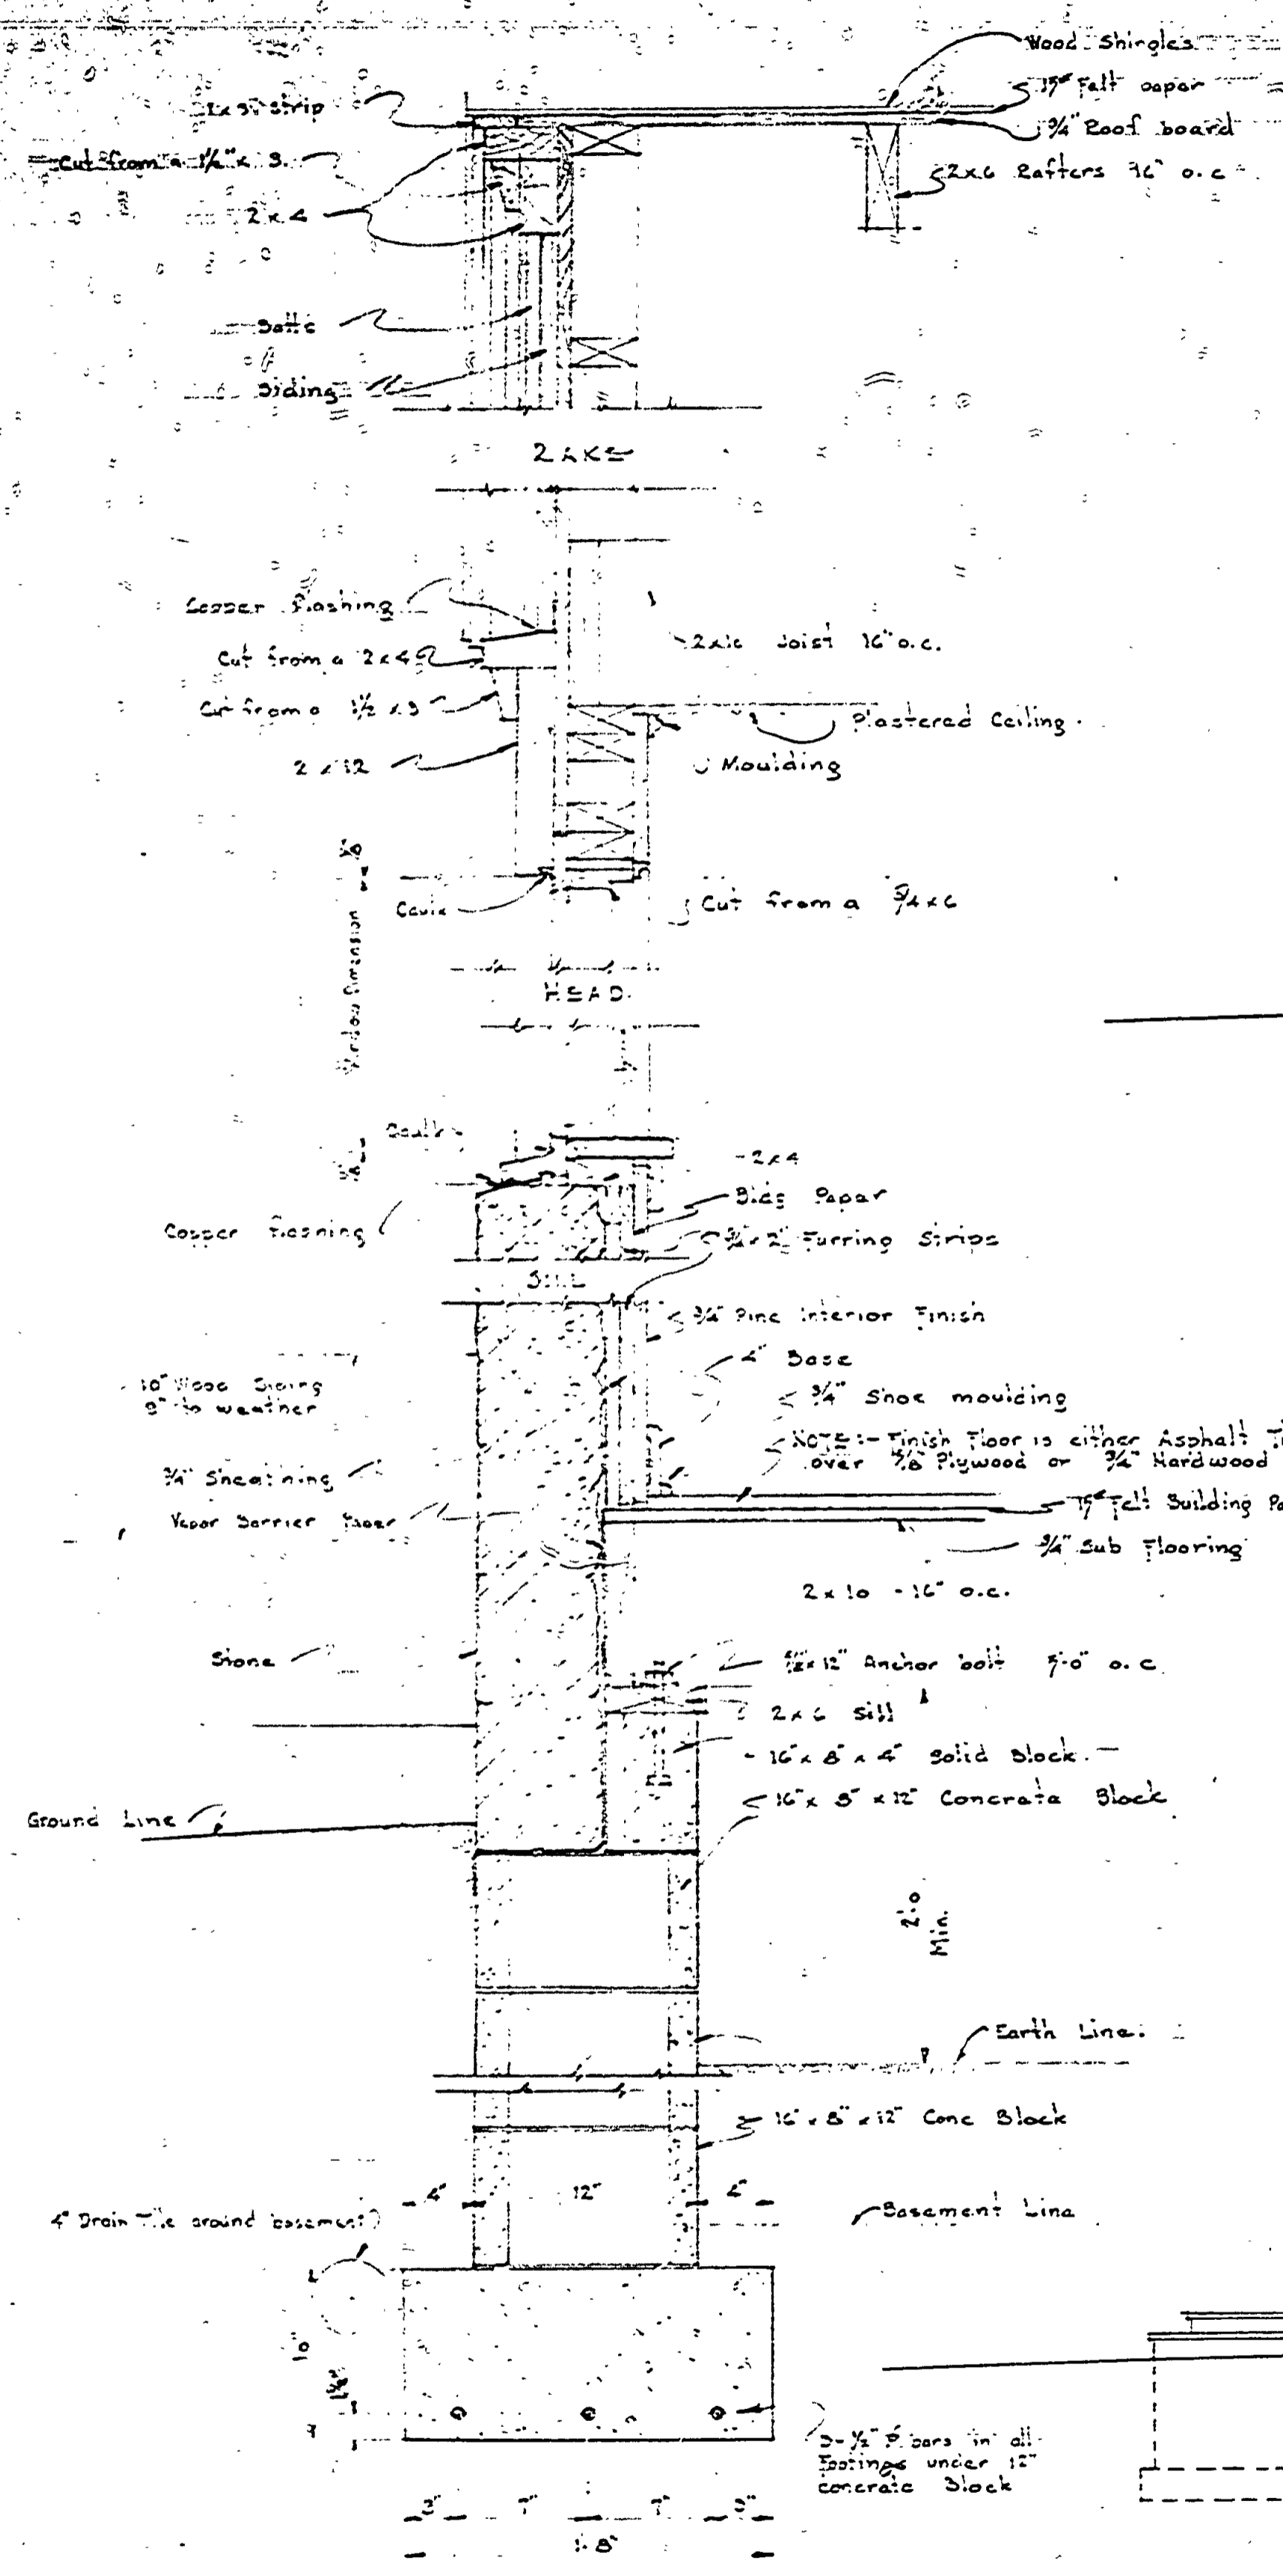 Wood Shingles
15# Felt paper
3/4" Roof board
2x6 Rafters 16" o.c.
Strip
Cut from a 1 1/2" x 3.
2 x 4
Batts
Siding
RAKE
Copper flashing
Cut from a 2x4
Cut from a 1 1/2 x 3
2 x 12
2x10 Joist 16" o.c.
Plastered Ceiling.
Moulding
Caulk
Cut from a 5/4 x 6
Window Dimension
HEAD.
Caulk
2x4
Bldg Paper
Copper flashing
3/4 x 2" Furring Strips
SILL
3/4" Pine Interior Finish
4" Base
10" Wood Siding
8" to weather
3/4" Shoe moulding
NOTE:- Finish Floor is either Asphalt
over 5/8" Plywood or 3/4" Hardwood
3/4" Sheathing
Vapor Barrier Paper
15# Felt Building
3/4" Sub Flooring
2 x 10 - 16" o.c.
Stone
1/2" x 12" Anchor bolt 5'-0" o.c.
2 x 6 Sill
16" x 8" x 4" Solid Block.
16" x 8" x 12" Concrete Block
Ground Line
2'-0
Min.
Earth Line.
16" x 8" x 12" Conc Block
4"
12"
4"
4" Drain Tile around basement
Basement Line
10"
3-1/2" bars in all
Footings under 12"
concrete Block
3" 7" 7" 3"
1'-8"